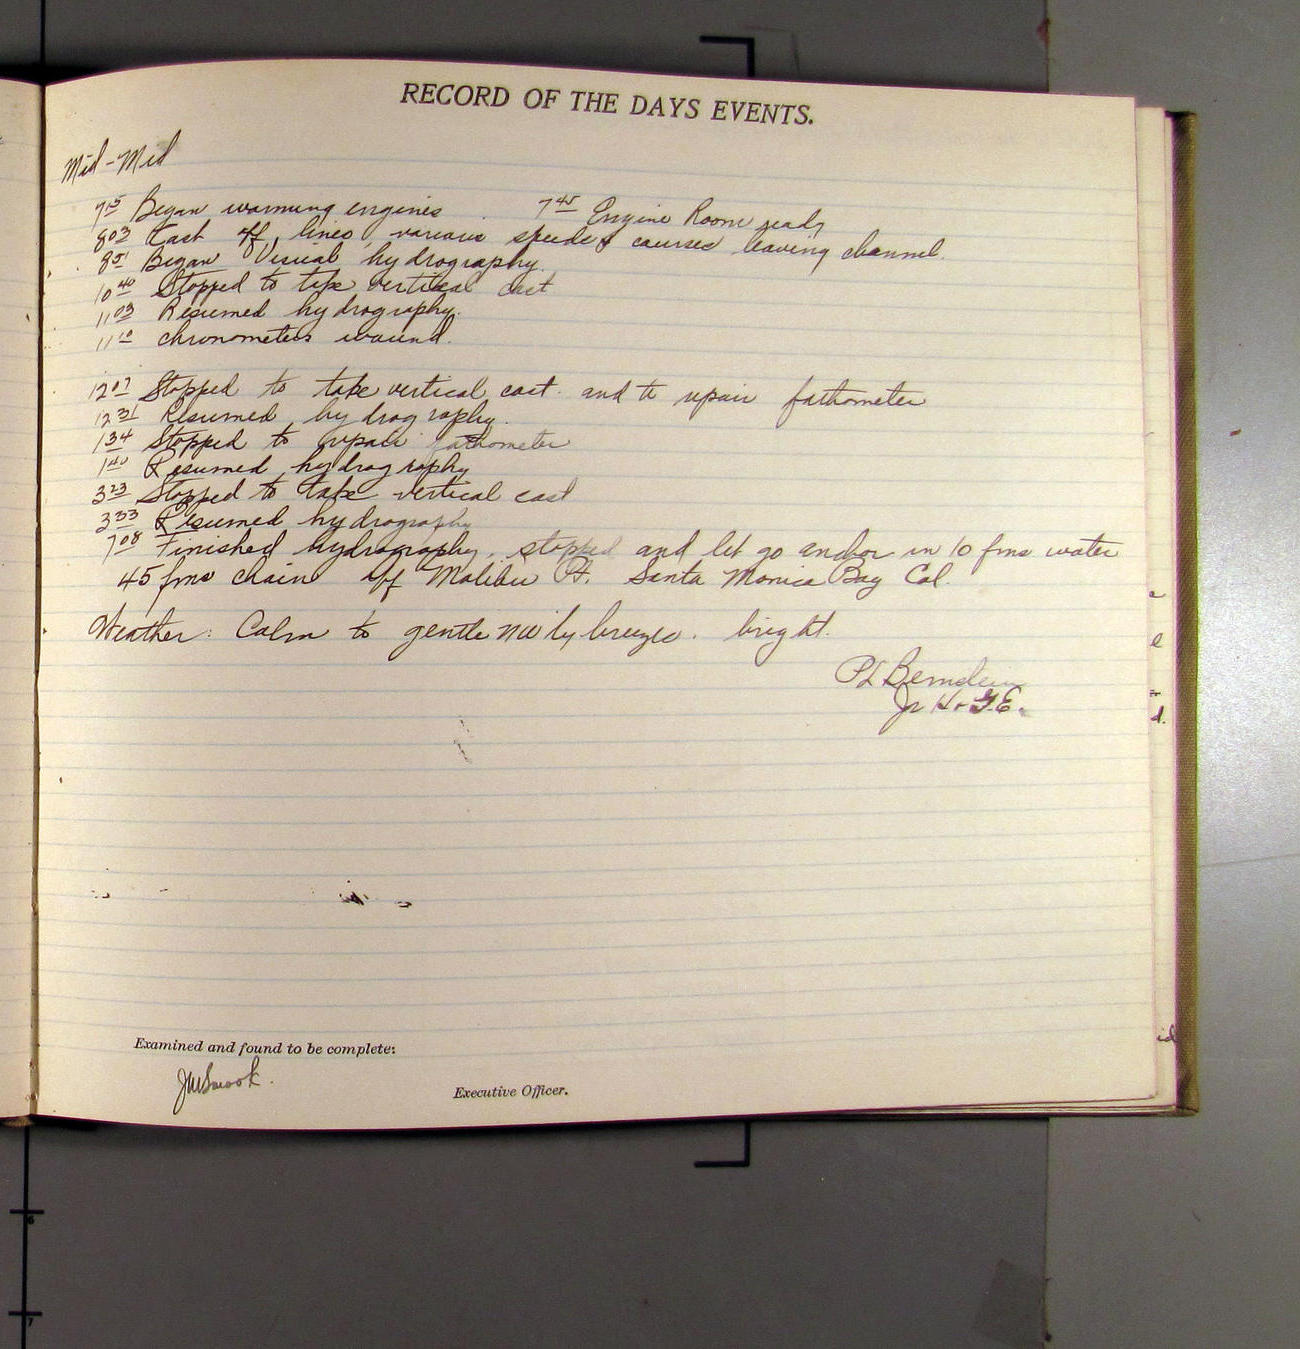 RECORD OF THE DAYS EVENTS.
Mid-Mid
7 15 Began warming engines. 7 45 Engine Room ready
8 03 Cast off lines, various speeds & courses leaving channel.
8 51 Began Visual hydrography.
10 40 Stopped to take vertical cast
11 03 Resumed hydrography.
11 10 chronometers wound.
12 07 Stopped to take vertical cast and to repair fathometer
12 31 Resumed hydrography.
1 34 Stopped to repair fathometer
1 40 Resumed hydrography
3 23 Stopped to take vertical cast
3 33 Resumed hydrography
7 08 Finished hydrography, stopped and let go anchor in 10 fms water
45 fms chain off Malibu Pt. Santa Monica Bay Cal.
Weather: Calm to gentle breeze. bright.
PL Bernstein
Jr H & G.E.
Examined and found to be complete:
Executive Officer.
6
7